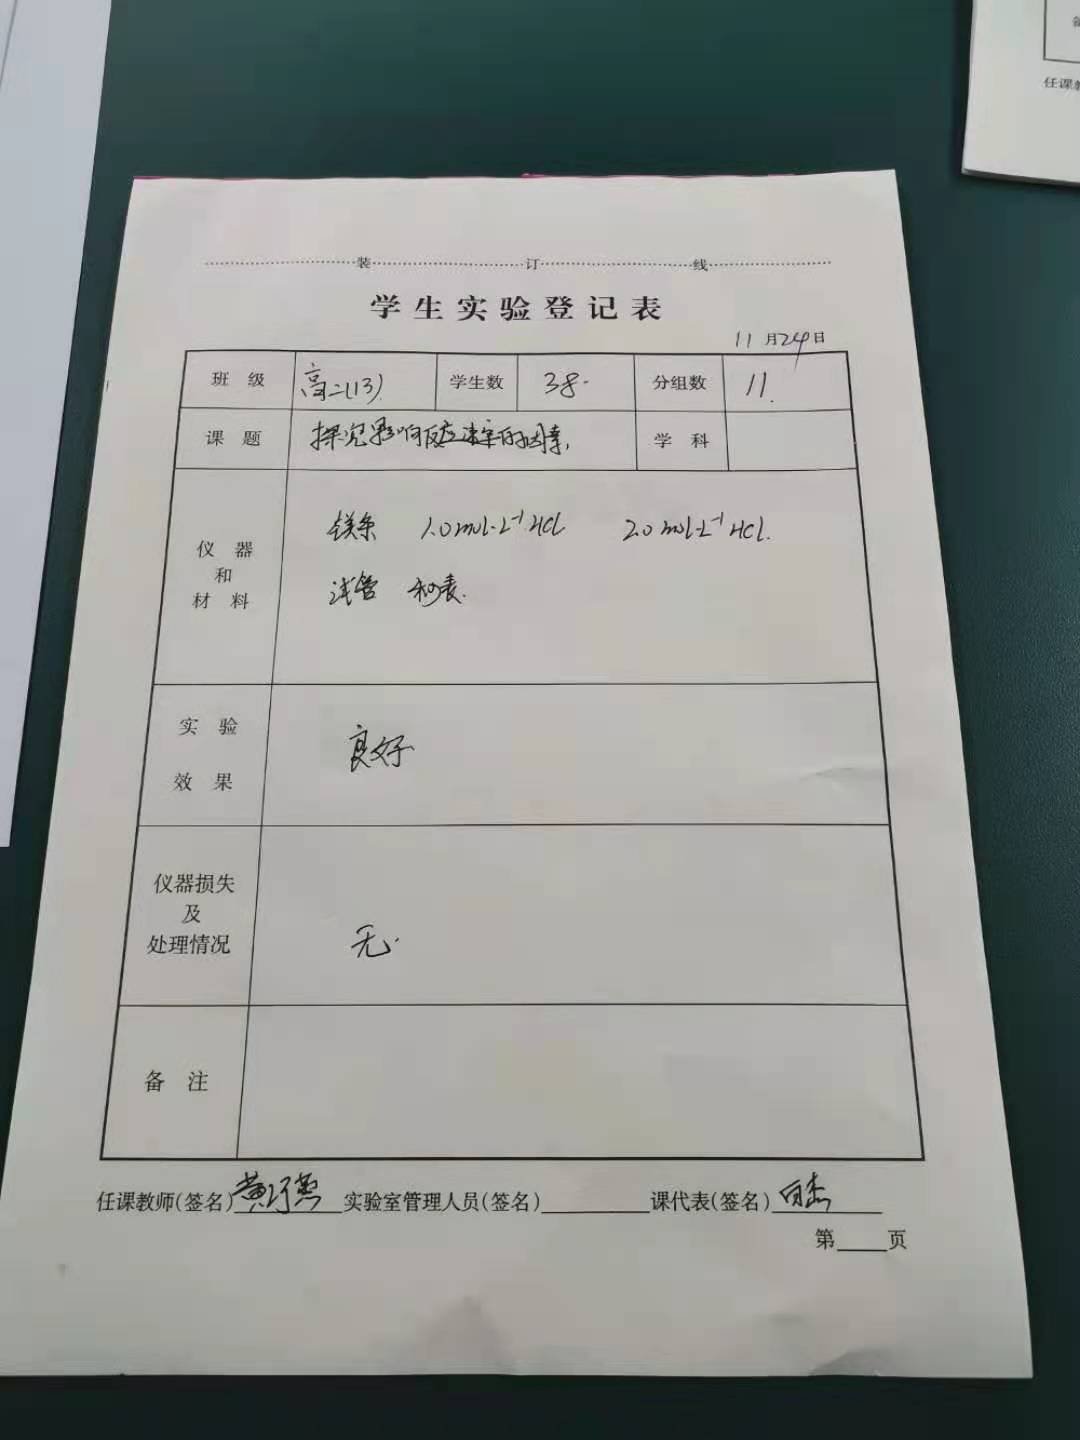 装 订 线
学生实验登记表
11月24日
班级 高二(13) 学生数 38. 分组数 11.
课题 探究影响反应速率的因素, 学科
仪器和材料
镁条 1.0mol·L⁻¹HCl 2.0mol·L⁻¹HCl.
试管 秒表.
实验效果 良好
仪器损失及处理情况 无.
备注
任课教师(签名) 实验室管理人员(签名) 课代表(签名)
第 页
任课